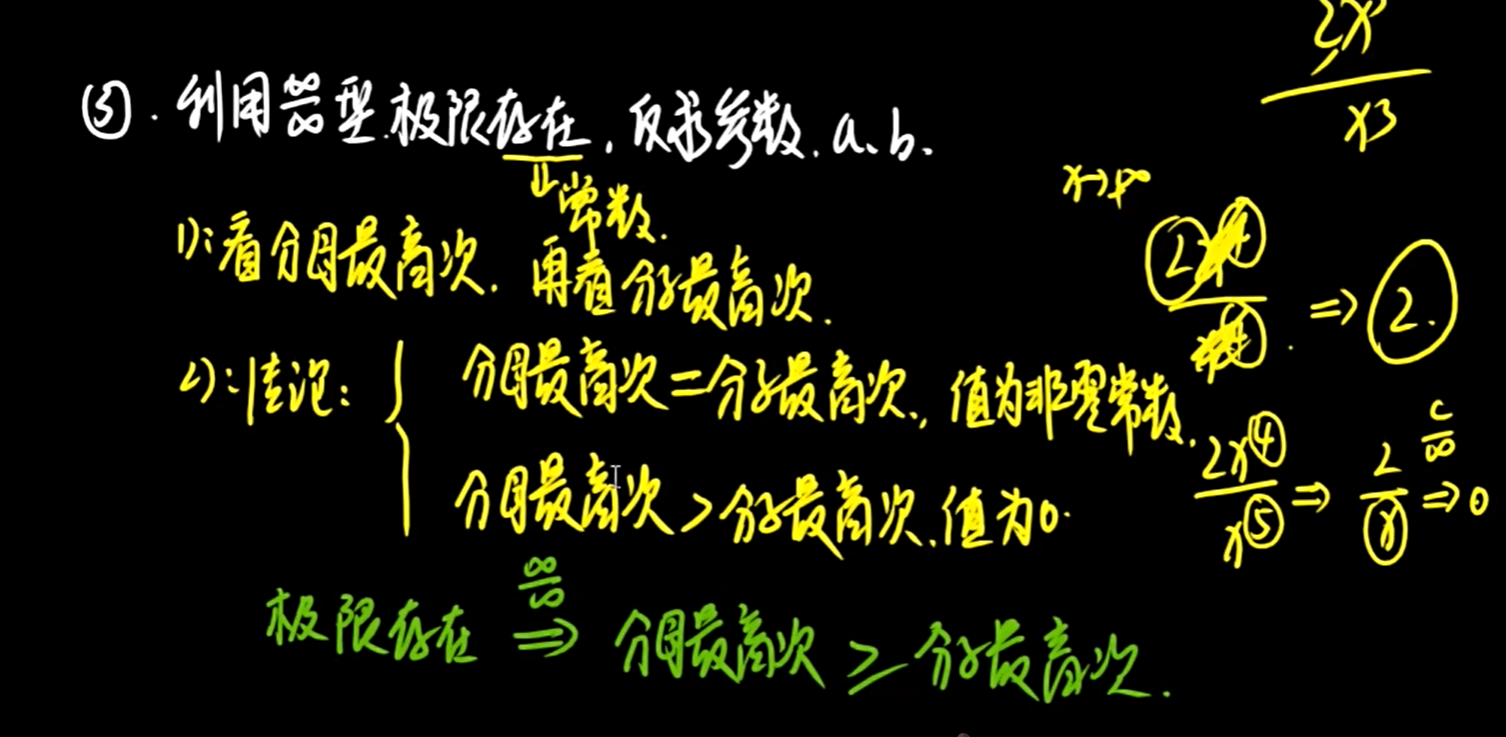 ⑤. 利用∞/∞型.极限存在,反求参数.a、b.
⇓常数.
1):看分母最高次.再看分子最高次.
2):结论:
分母最高次=分子最高次.,值为非零常数.
分母最高次>分子最高次.值为0.
极限存在 ∞/∞ ⇒ 分母最高次≥分子最高次.
x³
x→+∞
⇒ 2.
2x④/x⑤ ⇒ 2/x c/∞ ⇒ 0